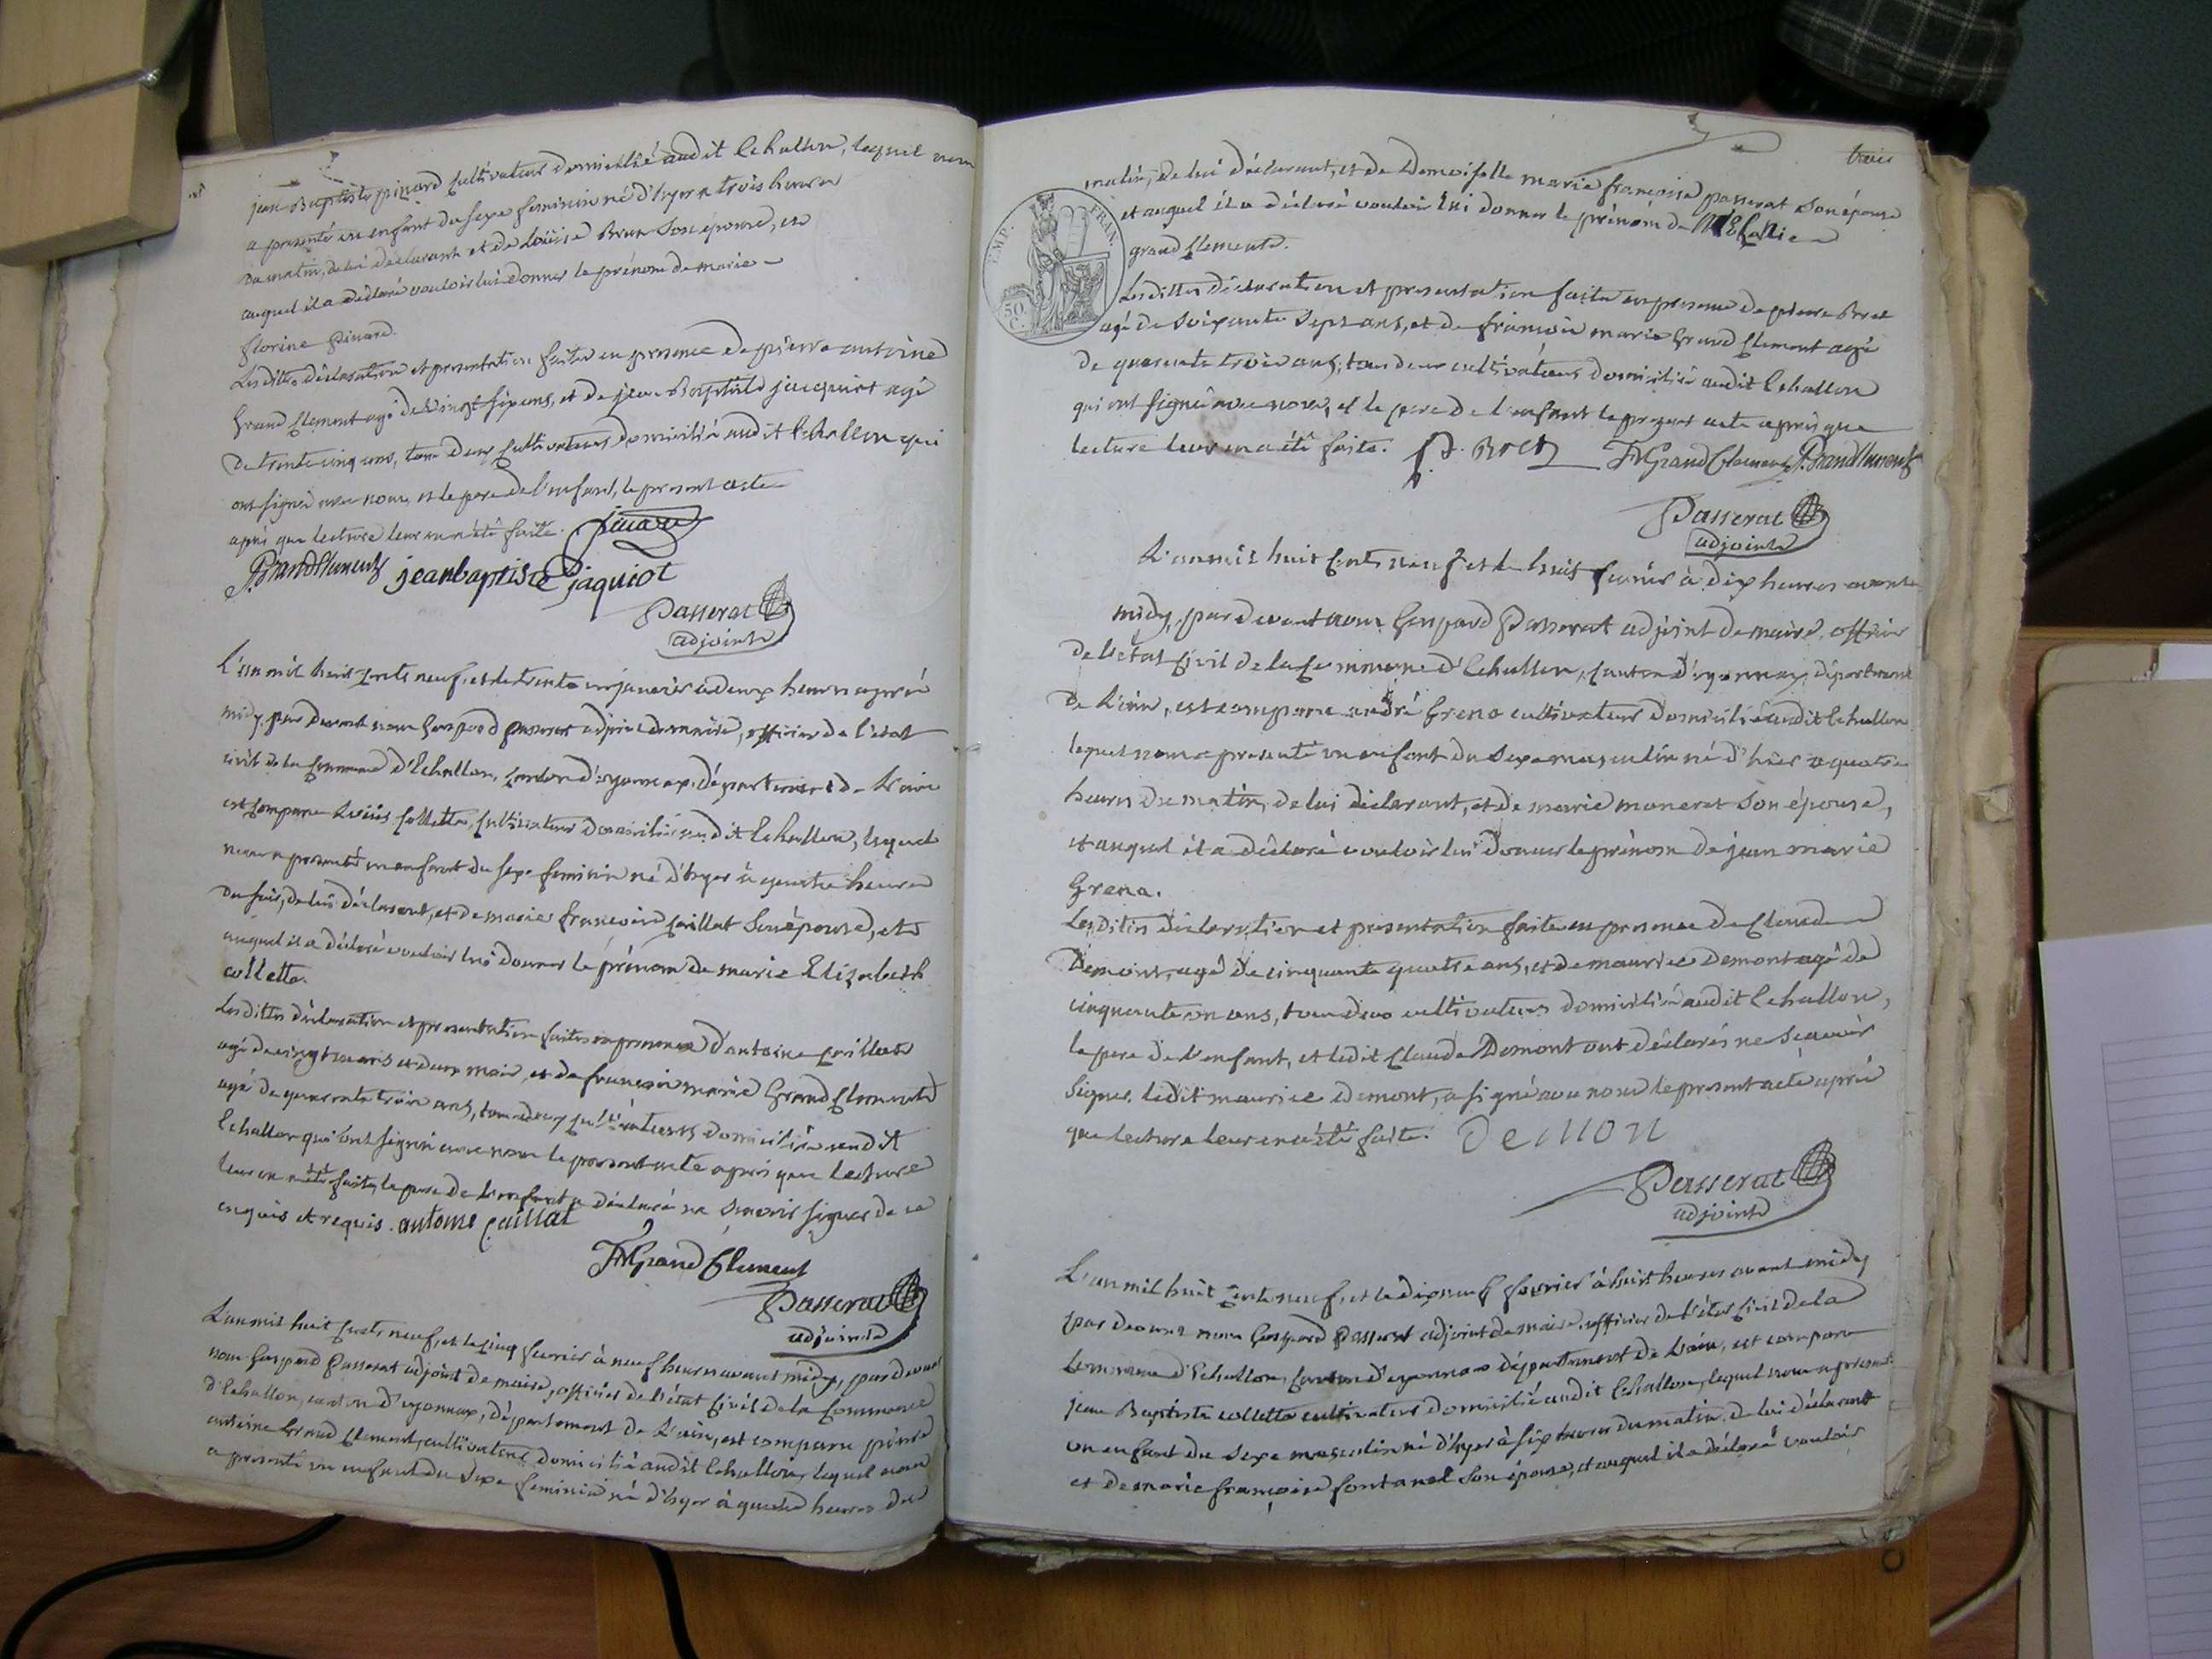 jean Baptiste pinard cultivateur domicilié audit Echallon, lequel nous
a presenté un enfant du sexe feminin né d'hyer a trois heures
du matin, de lui déclarant et de Louise Brun son épouse, et
auquel il a déclaré vouloir lui donner le prénom de marie
florine pinard.
Lesdittes déclaration et presentation faites en presence de pierre antoine
Grand Clement agé de vingt six ans, et de jean Baptiste jacquiot agé
de trente cinq ans, tous deux cultivateurs domiciliés audit Echallon qui
ont signé avec nous, et le pere de l'enfant, le present acte
après que lecture leur en a été faite. pinard
P. Grandclement jeanbaptiste jaquiot
Passerat
adjoint
L'an mil huit cents neuf, et le trente un janvier a deux heures après
midy, par devant nous Gaspard passerat adjoint de maire, officier de l'état
civil de la commune d'Echallon, canton d'oyonnax, département de L'ain
est comparu Louis collette, cultivateur domicilié audit Echallon, lequel
nous a presenté un enfant du sexe feminin né d'hyer à quatre heures
du soir, de lui déclarant, et de marie françoise caillat son épouse, et
auquel il a déclaré vouloir lui donner le prénom de marie Elizabeth
collette.
Lesdittes déclaration et presentation faites en presence d'antoine caillat
agé de vingt ans et deux mois, et de françois marie Grand Clement
agé de quarante trois ans, tous deux cultivateurs domiciliés audit
Echallon qui ont signé avec nous le present acte après que lecture
leur en a été faite, le pere de l'enfant a déclaré ne sçavoir signer de ce
enquis et requis. antoine caillat
FM Grand Clement
Passerat
adjoint
L'an mil huit cents neuf, et le cinq fevrier à neuf heures avant midy, par devant
nous Gaspard Passerat adjoint de maire, officier de l'état civil de la commune
d'Echallon, canton d'oyonnax, département de L'ain, est comparu pierre
antoine Grand Clement, cultivateur domicilié audit Echallon, lequel nous
a presenté un enfant du sexe feminin né d'hyer à quatre heures du
trois
EMP. FRAN.
50 C.
matin, de lui déclarant, et de Demoiselle marie françoise passerat son épouse
et auquel il a déclaré vouloir lui donner le prénom de
grand Clement.
Lesdittes déclaration et presentation faites en presence de pierre
agé de soixante sept ans, et de françois marie Grand Clement agé
de quarante trois ans, tous deux cultivateurs domiciliés audit Echallon
qui ont signé avec nous, et le pere de l'enfant le present acte après que
lecture leur en a été faite. FM Grand Clement P. Grandclement
Passerat
adjoint
L'an mil huit cents neuf et le huit fevrier à dix heures avant
midy, par devant nous Gaspard Passerat adjoint de maire, officier
de l'état civil de la commune d'Echallon, canton d'oyonnax, département
de L'ain, est comparu andré Grena cultivateur domicilié audit Echallon
lequel nous a presenté un enfant du sexe masculin né d'hier a quatre
heures du matin, de lui déclarant, et de marie maneret son épouse,
et auquel il a déclaré vouloir lui donner le prénom de jean marie
Grena.
Lesdittes déclaration et presentation faites en presence de Claude
Demont, agé de cinquante quatre ans, et de maurice Demont agé de
cinquante un ans, tous deux cultivateurs domiciliés audit Echallon,
le pere de l'enfant, et ledit Claude Demont ont déclarés ne sçavoir
signer. ledit maurice demont, a signé avec nous le present acte après
que lecture leur en a été faite. Demon
Passerat
adjoint
L'an mil huit cents neuf, et le dix neuf fevrier à huit heures avant midy
par devant nous Gaspard Passerat adjoint de maire, officier de l'état civil de la
Commune d'Echallon, canton d'oyonnax département de L'ain, est comparu
jean Baptiste collette cultivateur domicilié audit Echallon, lequel nous a presenté
un enfant du sexe masculin né d'hyer à six heures du matin, de lui déclarant
et de marie françoise fontanel son épouse, et auquel il a déclaré vouloir